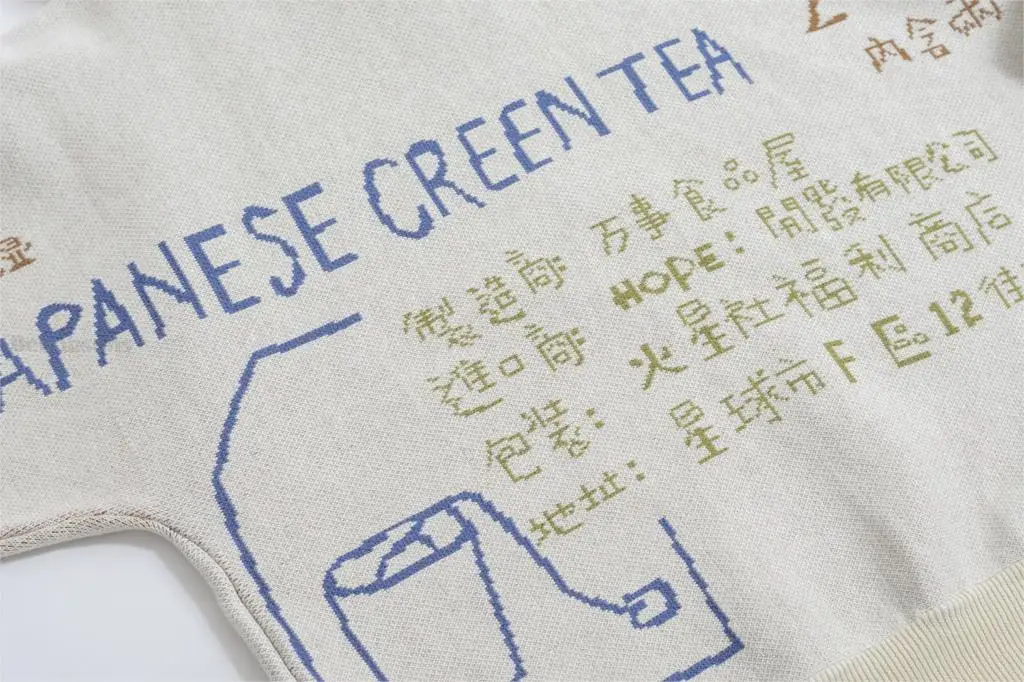 內含兩
JAPANESE GREEN TEA
製造商 万事食品屋
進口商 HOPE: 開發有限公司
包裝: 火星社福利商店
地址: 星球市F區12街